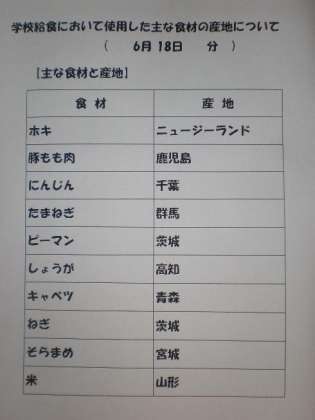 学校給食において使用した主な食材の産地について
（　6月 18日　分　）
[主な食材と産地]
食 材　産 地
ホキ　ニュージーランド
豚もも肉　鹿児島
にんじん　千葉
たまねぎ　群馬
ピーマン　茨城
しょうが　高知
キャベツ　青森
ねぎ　茨城
そらまめ　宮城
米　山形